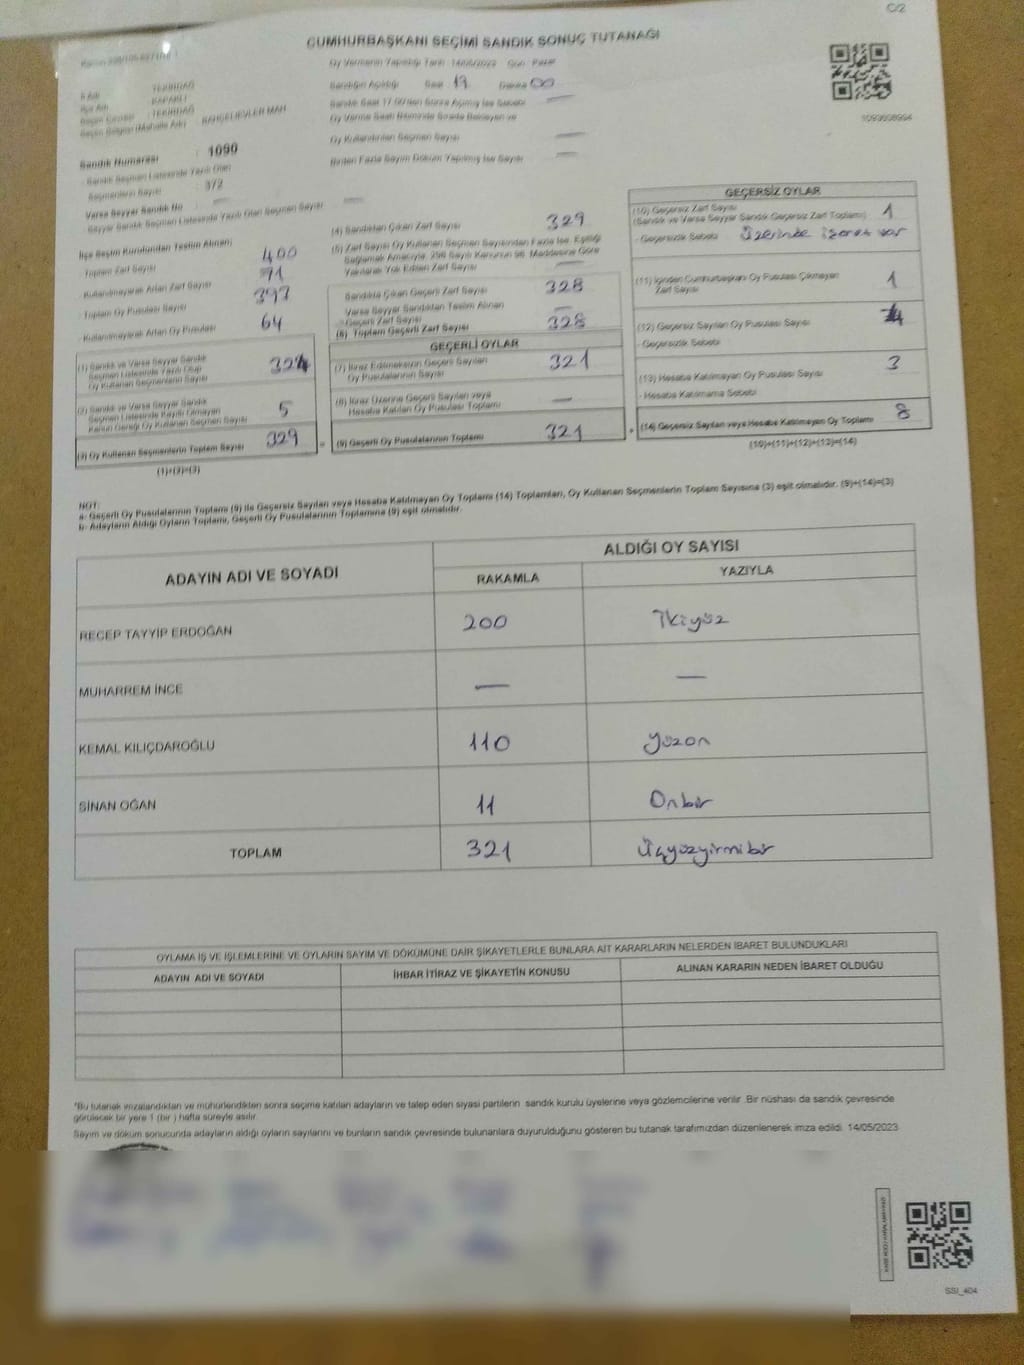 C/2
CUMHURBAŞKANI SEÇİMİ SANDIK SONUÇ TUTANAĞI
Oy Vermenin Yapıldığı Tarih : 14/05/2023 Gün : Pazar
Sandığın Açıldığı Saat 17 Dakika 00
Sandık Saat 17.00'den Sonra Açılmış İse Sebebi —
Oy Verme Saati Bitiminde Sırada Bekleyen ve
Oy Kullandırılan Seçmen Sayısı —
Birden Fazla Sayım Döküm Yapılmış İse Sayısı —
İl Adı : TEKİRDAĞ
İlçe Adı : KAPAKLI
Seçim Çevresi : TEKİRDAĞ
Seçim Bölgesi (Mahalle Adı) : BAHÇELİEVLER MAH
1093608994
Sandık Numarası : 1090
Sandık Seçmen Listesinde Yazılı Olan
Seçmenlerin Sayısı : 372
Varsa Seyyar Sandık No —
Seyyar Sandık Seçmen Listesinde Yazılı Olan Seçmen Sayısı —
İlçe Seçim Kurulundan Teslim Alınan;
- Toplam Zarf Sayısı 400
- Kullanılmayarak Artan Zarf Sayısı 71
- Toplam Oy Pusulası Sayısı 393
- Kullanılmayarak Artan Oy Pusulası 64
(1) Sandık ve Varsa Seyyar Sandık
Seçmen Listesinde Yazılı Olup
Oy Kullanan Seçmenlerin Sayısı 324
(2) Sandık ve Varsa Seyyar Sandık
Seçmen Listesinde Kayıtlı Olmayan
Kanun Gereği Oy Kullanan Seçmen Sayısı 5
(3) Oy Kullanan Seçmenlerin Toplam Sayısı 329
(1)+(2)=(3)
(4) Sandıktan Çıkan Zarf Sayısı 329
(5) Zarf Sayısı Oy Kullanan Seçmen Sayısından Fazla İse, Eşitliği
Sağlamak Amacıyla, 298 Sayılı Kanunun 98. Maddesine Göre
Yakılarak Yok Edilen Zarf Sayısı —
Sandıkta Çıkan Geçerli Zarf Sayısı 328
Varsa Seyyar Sandıktan Teslim Alınan
Geçerli Zarf Sayısı —
(6) Toplam Geçerli Zarf Sayısı 328
GEÇERLİ OYLAR
(7) İtiraz Edilmeksizin Geçerli Sayılan
Oy Pusulalarının Sayısı 321
(8) İtiraz Üzerine Geçerli Sayılan veya
Hesaba Katılan Oy Pusulası Toplamı —
= (9) Geçerli Oy Pusulalarının Toplamı 321
GEÇERSİZ OYLAR
(10) Geçersiz Zarf Sayısı
(Sandık ve Varsa Seyyar Sandık Geçersiz Zarf Toplamı) 1
- Geçersizlik Sebebi Üzerinde işaret var
(11) İçinden Cumhurbaşkanı Oy Pusulası Çıkmayan
Zarf Sayısı 1
(12) Geçersiz Sayılan Oy Pusulası Sayısı
- Geçersizlik Sebebi
(13) Hesaba Katılmayan Oy Pusulası Sayısı 3
- Hesaba Katılmama Sebebi
+ (14) Geçersiz Sayılan veya Hesaba Katılmayan Oy Toplamı 8
(10)+(11)+(12)+(13)=(14)
NOT:
a- Geçerli Oy Pusulalarının Toplamı (9) ile Geçersiz Sayılan veya Hesaba Katılmayan Oy Toplamı (14) Toplamları, Oy Kullanan Seçmenlerin Toplam Sayısına (3) eşit olmalıdır. (9)+(14)=(3)
b- Adayların Aldığı Oyların Toplamı, Geçerli Oy Pusulalarının Toplamına (9) eşit olmalıdır.
ADAYIN ADI VE SOYADI
ALDIĞI OY SAYISI
RAKAMLA YAZIYLA
RECEP TAYYİP ERDOĞAN 200 İkiyüz
MUHARREM İNCE — —
KEMAL KILIÇDAROĞLU 110 yüzon
SİNAN OĞAN 11 Onbir
TOPLAM 321 Üçyüzyirmibir
OYLAMA İŞ VE İŞLEMLERİNE VE OYLARIN SAYIM VE DÖKÜMÜNE DAİR ŞİKAYETLERLE BUNLARA AİT KARARLARIN NELERDEN İBARET BULUNDUKLARI
ADAYIN ADI VE SOYADI İHBAR İTİRAZ VE ŞİKAYETİN KONUSU ALINAN KARARIN NEDEN İBARET OLDUĞU
*Bu tutanak imzalandıktan ve mühürlendikten sonra seçime katılan adayların ve talep eden siyasi partilerin sandık kurulu üyelerine veya gözlemcilerine verilir .Bir nüshası da sandık çevresinde
görülecek bir yere 1 (bir ) hafta süreyle asılır.
Sayım ve döküm sonucunda adayların aldığı oyların sayılarını ve bunların sandık çevresinde bulunanlara duyurulduğunu gösteren bu tutanak tarafımızdan düzenlenerek imza edildi. 14/05/2023
SSI_404